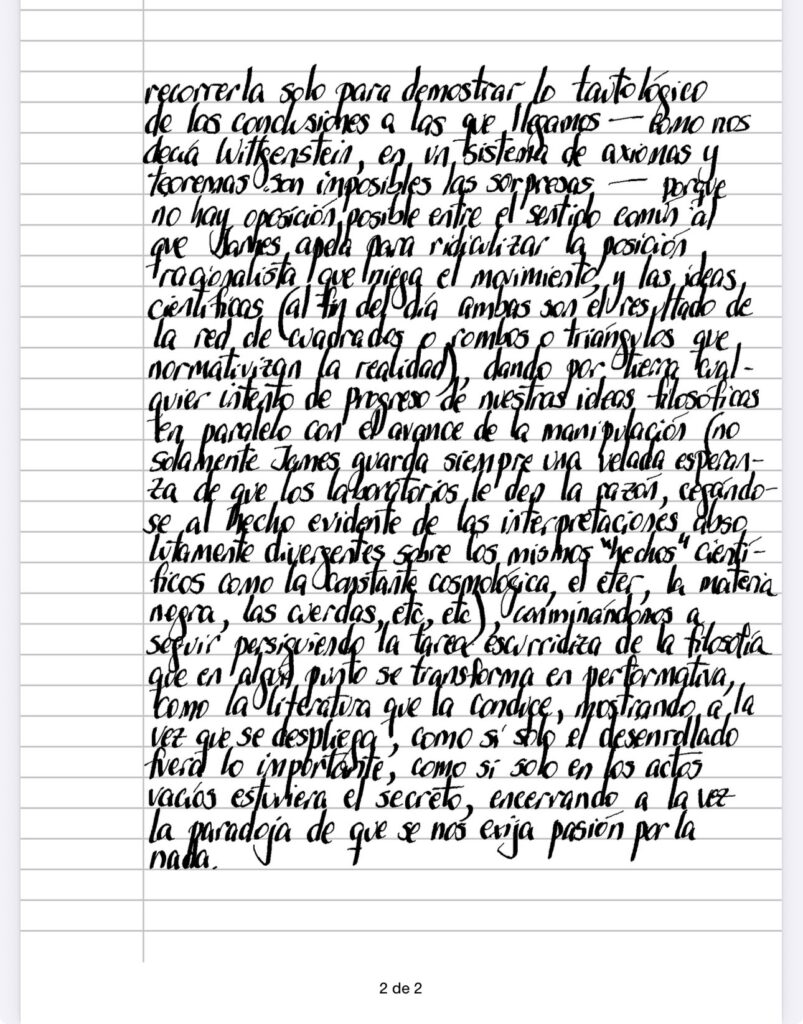 recorrerla solo para demostrar lo tautológico
de las conclusiones a las que llegamos — como nos
decía Wittgenstein, en un sistema de axiomas y
teoremas son imposibles las sorpresas — porque
no hay oposición posible entre el sentido común al
que James apela para ridiculizar la posición
racionalista que niega el movimiento, y las ideas
científicas (al fin del día ambas son el resultado de
la red de cuadrados o rombos o triángulos que
normativizan la realidad), dando por tierra cual-
quier intento de progreso de nuestras ideas filosóficas
en paralelo con el avance de la manipulación (no
solamente James guarda siempre una velada esperan-
za de que los laboratorios le den la razón, cegándo-
se al hecho evidente de las interpretaciones abso
lutamente divergentes sobre los mismos "hechos" cientí-
ficos como la constante cosmológica, el éter, la materia
negra, las cuerdas, etc, etc), conminándonos a
seguir persiguiendo la tarea escurridiza de la filosofía
que en algún punto se transforma en performativa,
como la literatura que la conduce, mostrando a la
vez que se despliega, como si solo el desenrollado
fuera lo importante, como si solo en los actos
vacíos estuviera el secreto, encerrando a la vez
la paradoja de que se nos exija pasión por la
nada.
2 de 2